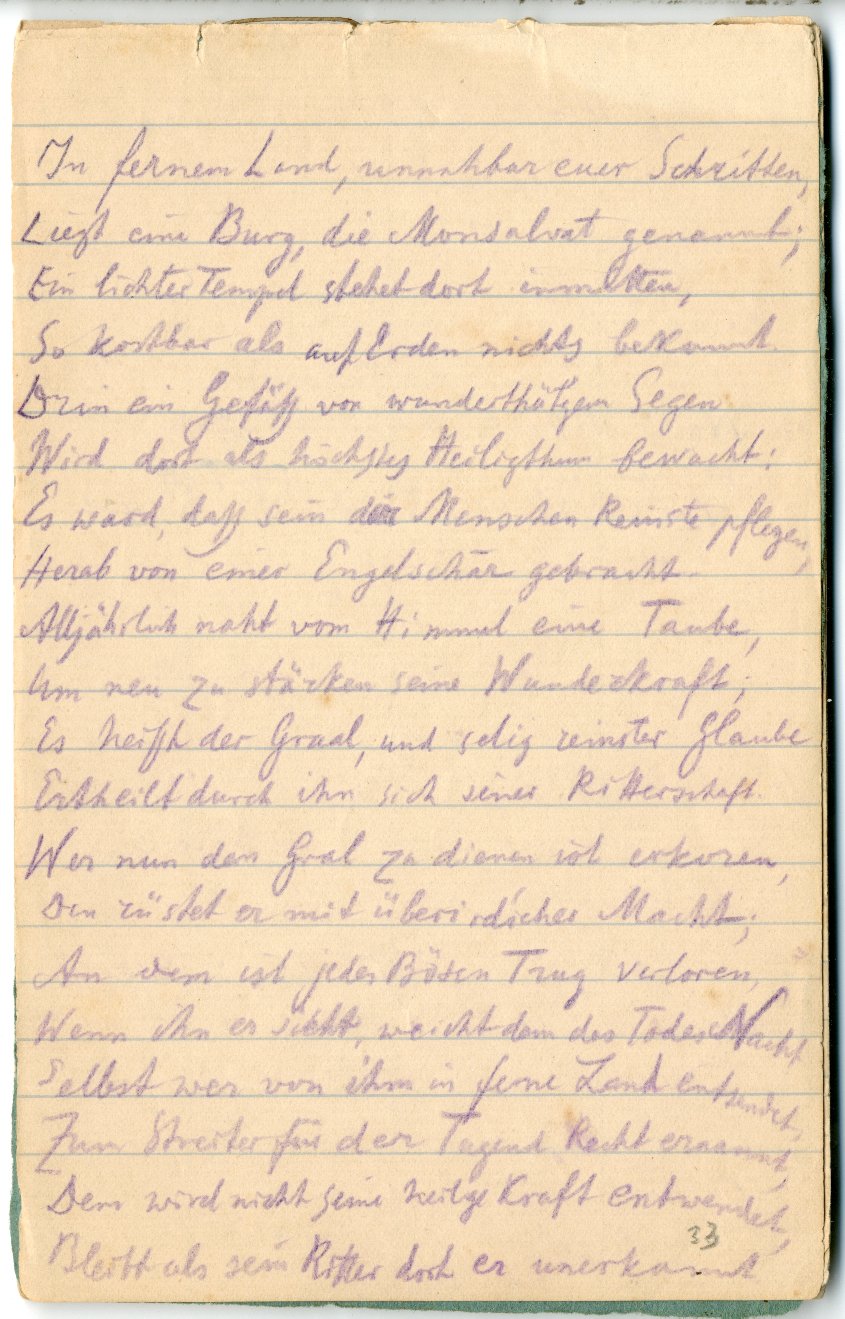 In fernem Land, unnahbar euer Schritten,
Liegt eine Burg, die Monsalvat genannt;
Ein lichter Tempel stehet dort inmitten,
So kostbar als auf Erden nichts bekannt.
Drin ein Gefäß von wunderthätigem Segen
Wird dort als höchstes Heiligthum bewacht:
Es ward, daß sein der Menschen Reinste pflegen,
Herab von einer Engelschar gebracht.
Alljährlich naht vom Himmel eine Taube,
Um neu zu stärken seine Wunderkraft;
Es heißt der Graal, und selig reinster Glaube
Ertheilt durch ihn sich seiner Ritterschaft.
Wer nun dem Gral zu dienen ist erkoren,
Den rüstet er mit überirdischer Macht;
An dem ist jedes Bösen Trug verloren,
Wenn ihn er sieht, weicht dem des Todes Nacht
Selbst wer von ihm in ferne Land entsendet,
Zum Streiter für der Tugend Recht ernannt,
Dem wird nicht seine heilge Kraft entwendet,
Bleibt als sein Ritter dort er unerkannt
33